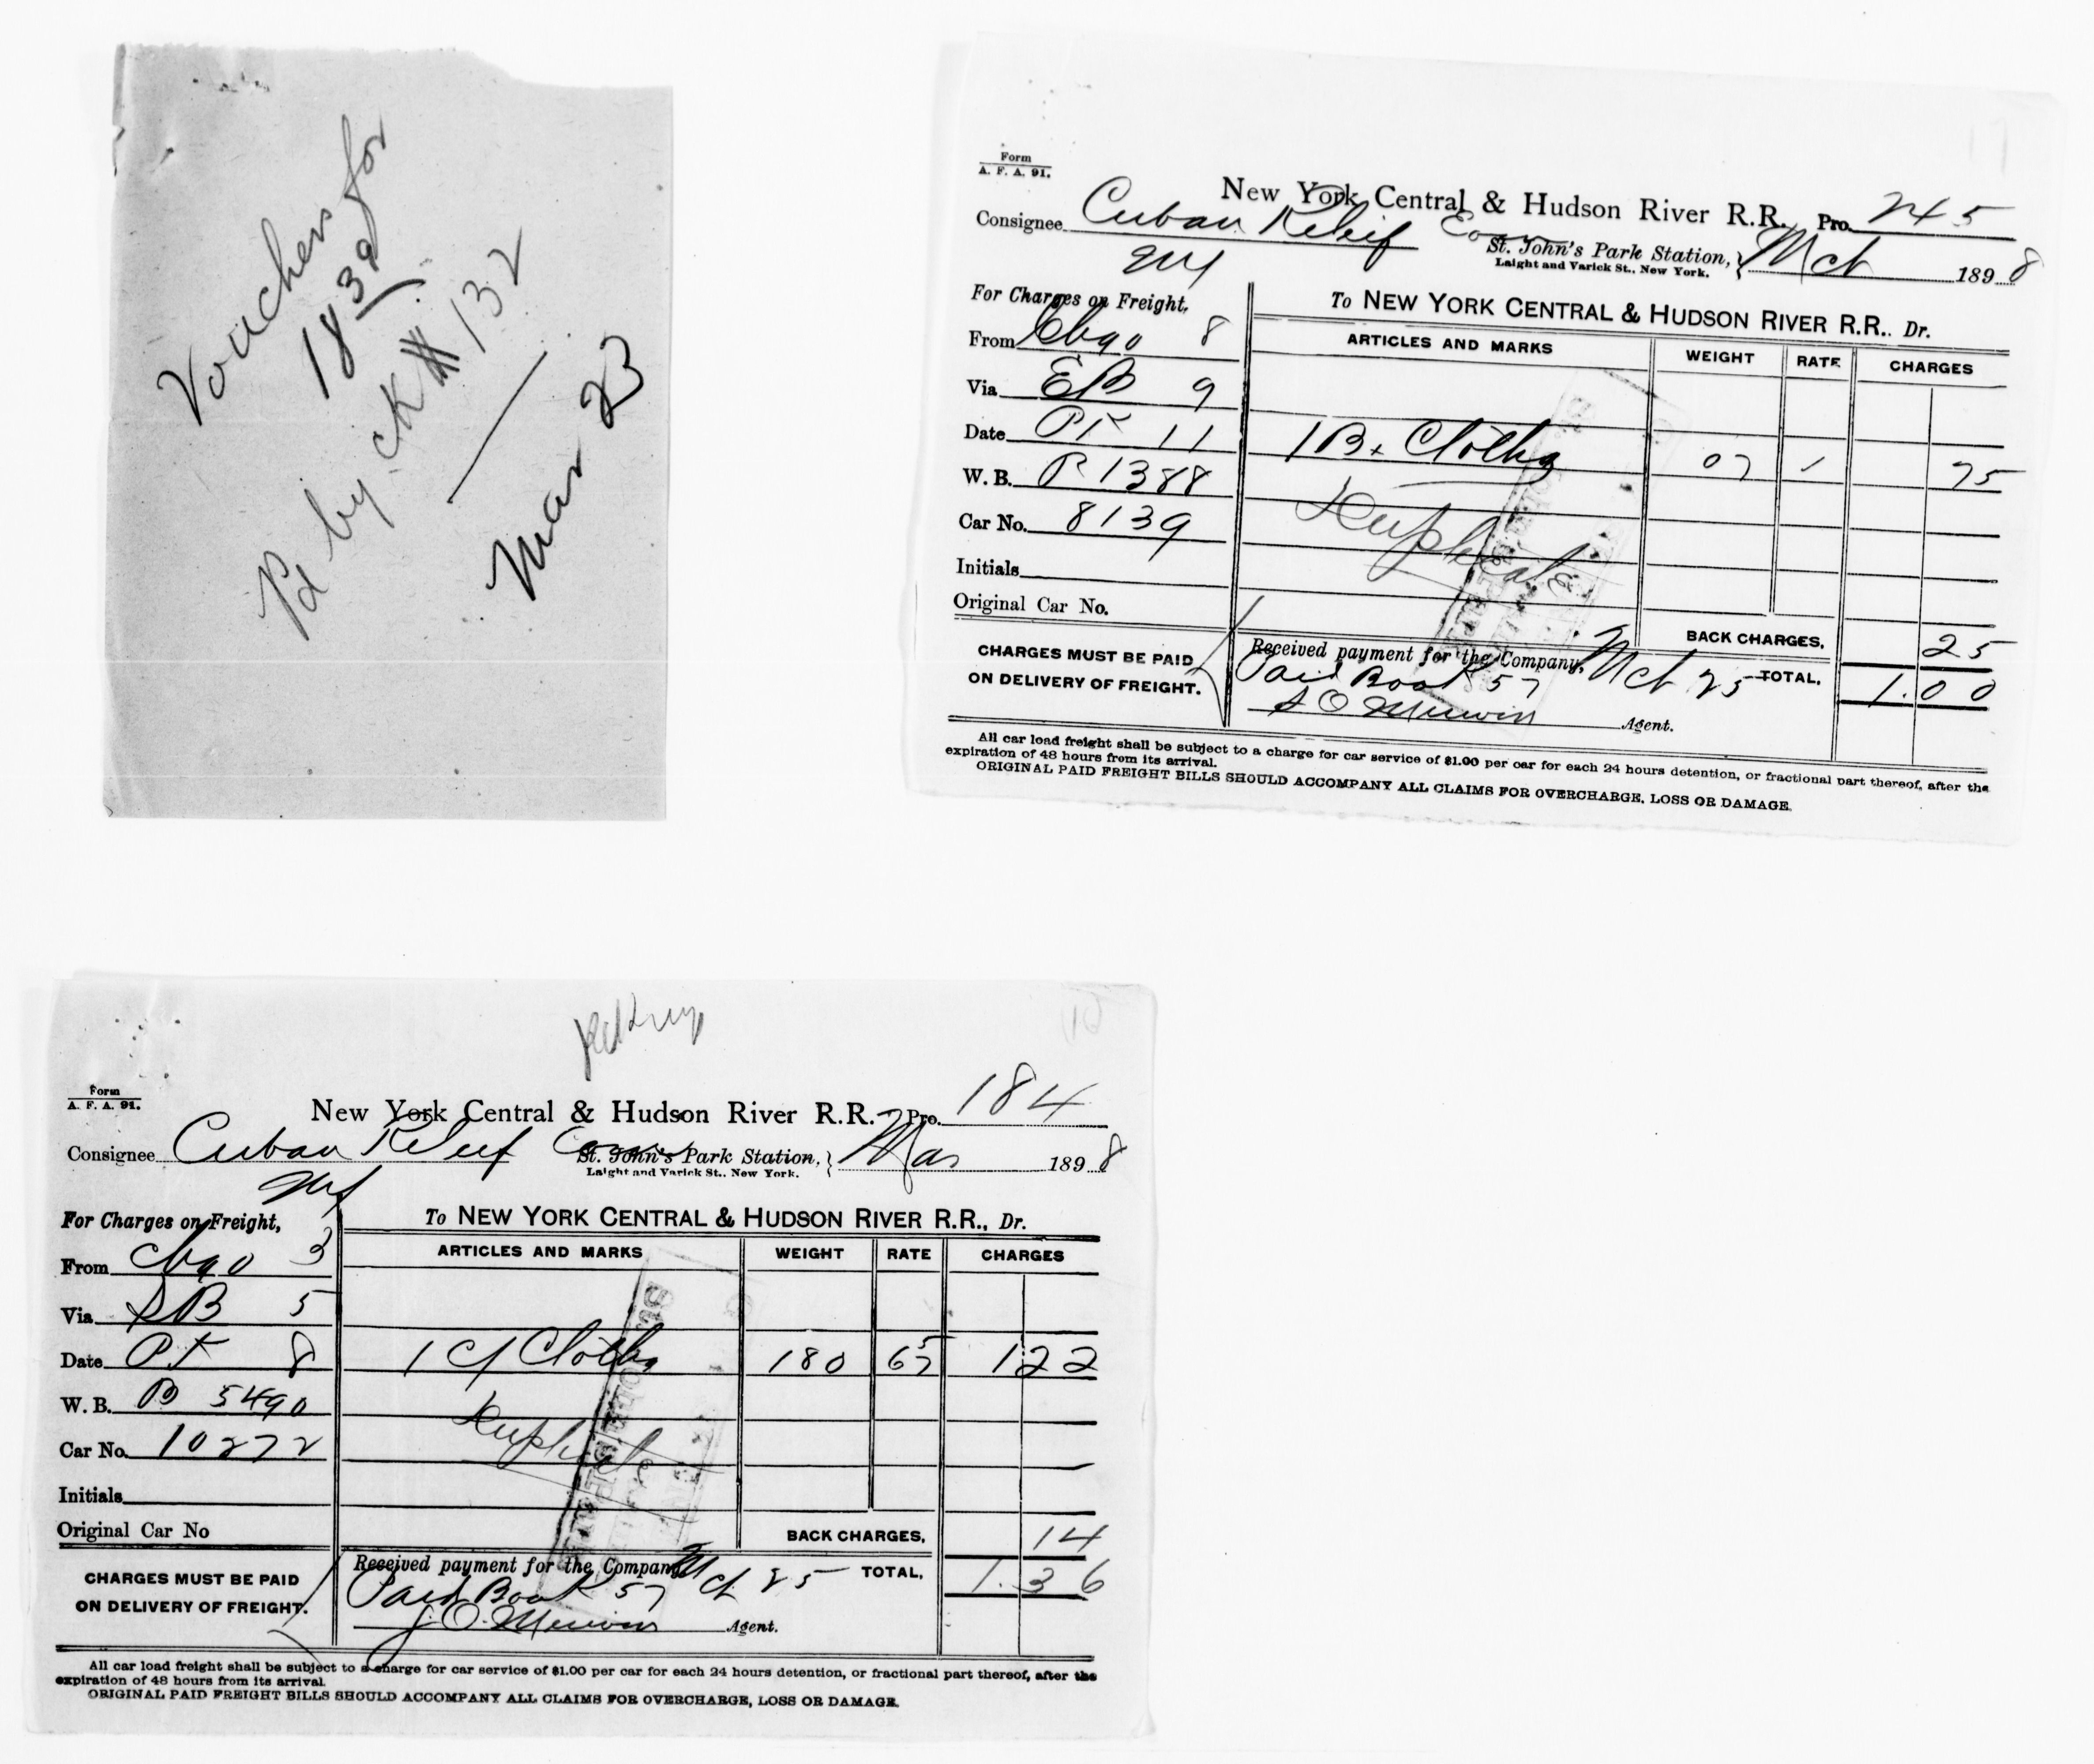 Vouchers for
18 39
Pd by ck # 132
Mar 23
Form
A. F. A. 91.
New York Central & Hudson River R.R. Pro. 245
Consignee Cuban Relief Com
St. John's Park Station,
Laight and Varick St., New York. Mch 1898
NY
For Charges on Freight,
To NEW YORK CENTRAL & HUDSON RIVER R.R., Dr.
From Chgo 8
ARTICLES AND MARKS WEIGHT RATE CHARGES
Via EB 9
Date PT 11
1 Bx Clothg 07 75
W. B. R 1388
Duplicate
Car No. 8139
Initials
Original Car No.
BACK CHARGES, 25
CHARGES MUST BE PAID
ON DELIVERY OF FREIGHT.
Received payment for the Company, Mch 25 TOTAL, 1.00
Paid Book 57
Merwin Agent.
All car load freight shall be subject to a charge for car service of $1.00 per car for each 24 hours detention, or fractional part thereof, after the
expiration of 48 hours from its arrival.
ORIGINAL PAID FREIGHT BILLS SHOULD ACCOMPANY ALL CLAIMS FOR OVERCHARGE, LOSS OR DAMAGE.
Form
A. F. A. 91.
New York Central & Hudson River R.R. Pro. 184
Consignee Cuban Relief Com
St. John's Park Station,
Laight and Varick St., New York. Mar 1898
NY
For Charges on Freight,
To NEW YORK CENTRAL & HUDSON RIVER R.R., Dr.
From Chgo 3
ARTICLES AND MARKS WEIGHT RATE CHARGES
Via SB 5
Date PT 8
1 C/ Clothg 180 67 5 1 22
W. B. B 5490
Duplicate
Car No. 10272
Initials
Original Car No
BACK CHARGES, 14
CHARGES MUST BE PAID
ON DELIVERY OF FREIGHT.
Received payment for the Company Mch 25 TOTAL, 1.36
Paid Book 57
J. O. Merwin Agent.
All car load freight shall be subject to a charge for car service of $1.00 per car for each 24 hours detention, or fractional part thereof, after the
expiration of 48 hours from its arrival.
ORIGINAL PAID FREIGHT BILLS SHOULD ACCOMPANY ALL CLAIMS FOR OVERCHARGE, LOSS OR DAMAGE.